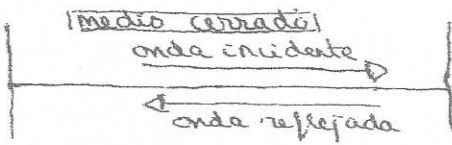 medio cerrado
onda incidente
onda reflejada